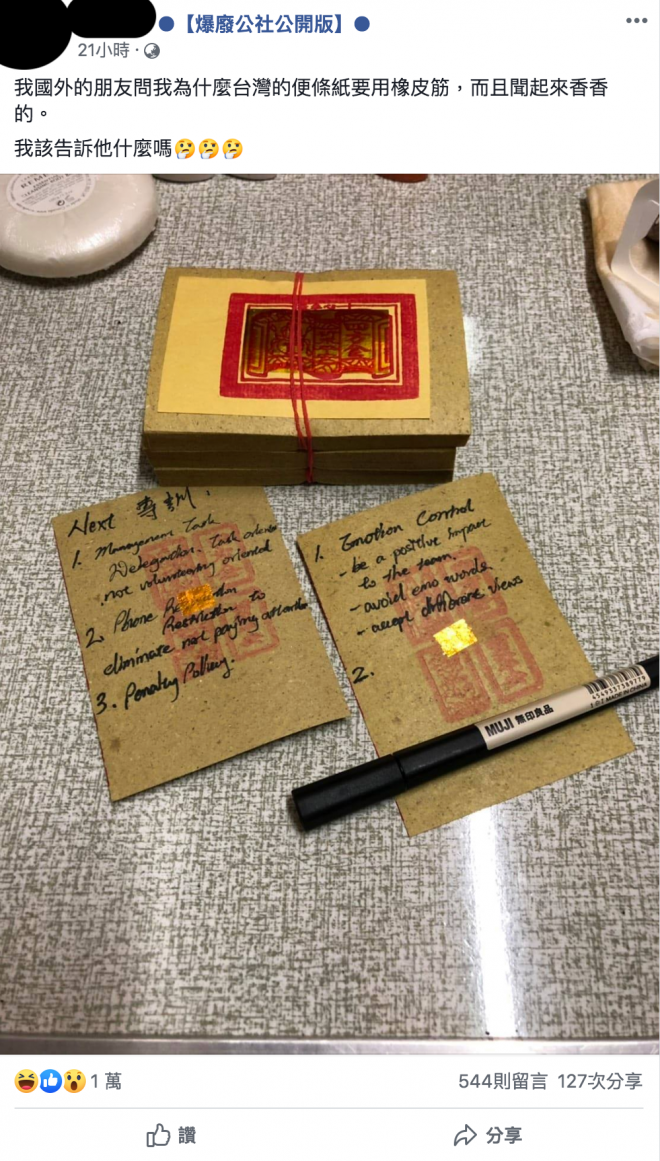 ●【爆廢公社公開版】●
21小時 ·
我國外的朋友問我為什麼台灣的便條紙要用橡皮筋,而且聞起來香香
的。
我該告訴他什麼嗎🤔🤔🤔
REME
Next 專訓:
1. Management Task
Delegation. Task oriented
not volunteering oriented
2. Phone
Restriction to
eliminate not paying attention
3. Penalty Policy.
1. Emotion Control
- be a positive impact
to the team.
- avoid emo words
- accept different views
2.
MUJI 無印良品
MADE IN CHINA
1 萬
544則留言 127次分享
讚
分享